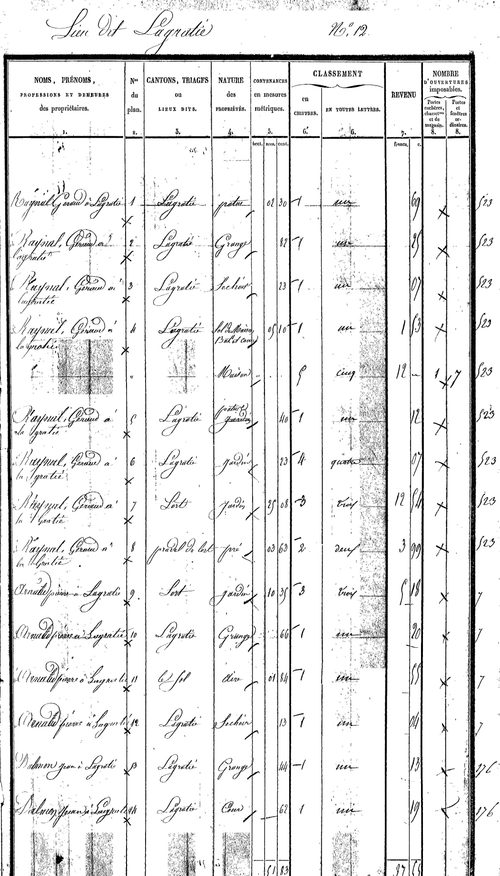 Lieu dit Lagratie N° 12
NOMS, PRÉNOMS, PROFESSIONS ET DEMEURES des propriétaires. N.os du plan. CANTONS, TRIAGES ou LIEUX DITS. NATURE des PROPRIÉTÉS. CONTENANCES en mesures métriques. CLASSEMENT en CHIFFRES. EN TOUTES LETTRES. REVENU NOMBRE D'OUVERTURES imposables.
1. 2. 3. 4. 5. 6. 6. 7. 8. 8.
Raynal Géraud à Lagratie 1 Lagratie patus 02 30 1 un 69 523
Raynal, Géraud à lagratie 2 Lagratie Grange 82 1 un 25 523
Raynal, Géraud à lagratie 3 Lagratie Sechoir 23 1 un 07 523
Raynal, Géraud à lagratie 4 Lagratie Sol de Maison, 05 10 1 un 1 53 523
Maison 5 cinq 12 1 7 523
Raynal, Géraud à lagratie 5 Lagratie 40 1 un 12 523
Raynal, Géraud à lagratie 6 Lagratie jardin 23 4 quatre 07 523
Raynal, Géraud à lagratie 7 Sort jardin 25 08 3 trois 12 54 523
Raynal, Géraud à lagratie 8 pradel de lort pré 03 63 2 deux 3 99 523
pierre à Lagratie 9 Sort jardin 10 35 3 trois 5 18 7
pierre à Lagratie 10 Lagratie Grange 66 1 un 20 7
pierre à Lagratie 11 aire 01 84 1 un 55 7
pierre à Lagratie 12 Lagratie Sechoir 13 1 un 04 7
Dalmon jean à Lagratie 13 Lagratie Grange 44 1 un 13 176
Dalmon jean à Lagratie 14 Lagratie Cour 62 1 un 19 176
51 83 37